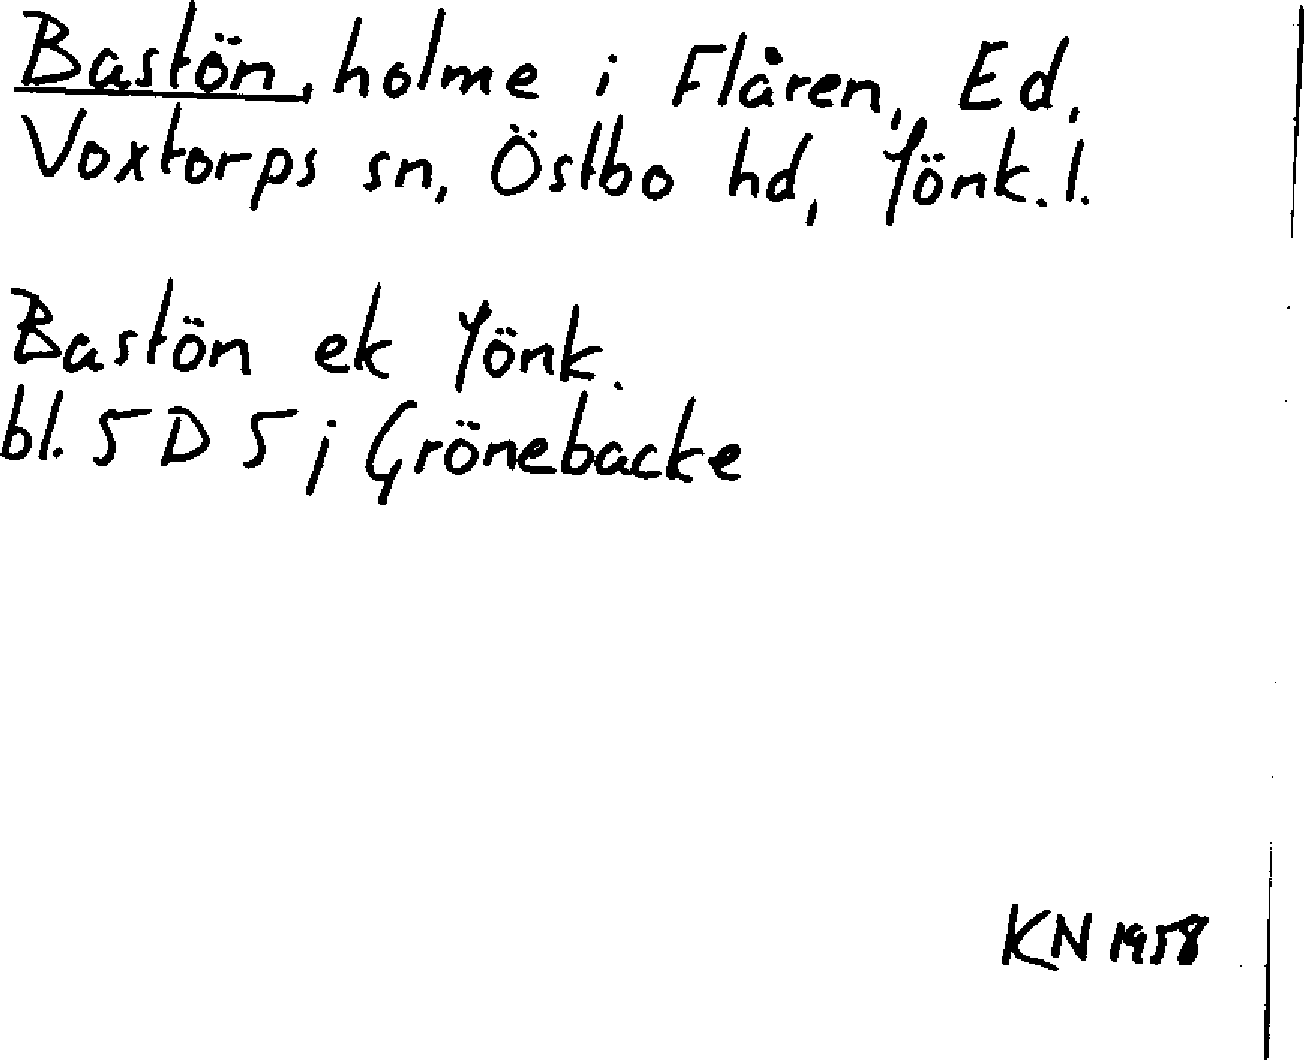 Bastön, holme i Flåren, Ed,
Voxtorps sn, Östbo hd, Jönk. l.
Bastön ek Jönk.
bl. 5 D 5 j Grönebacke
KN 1958